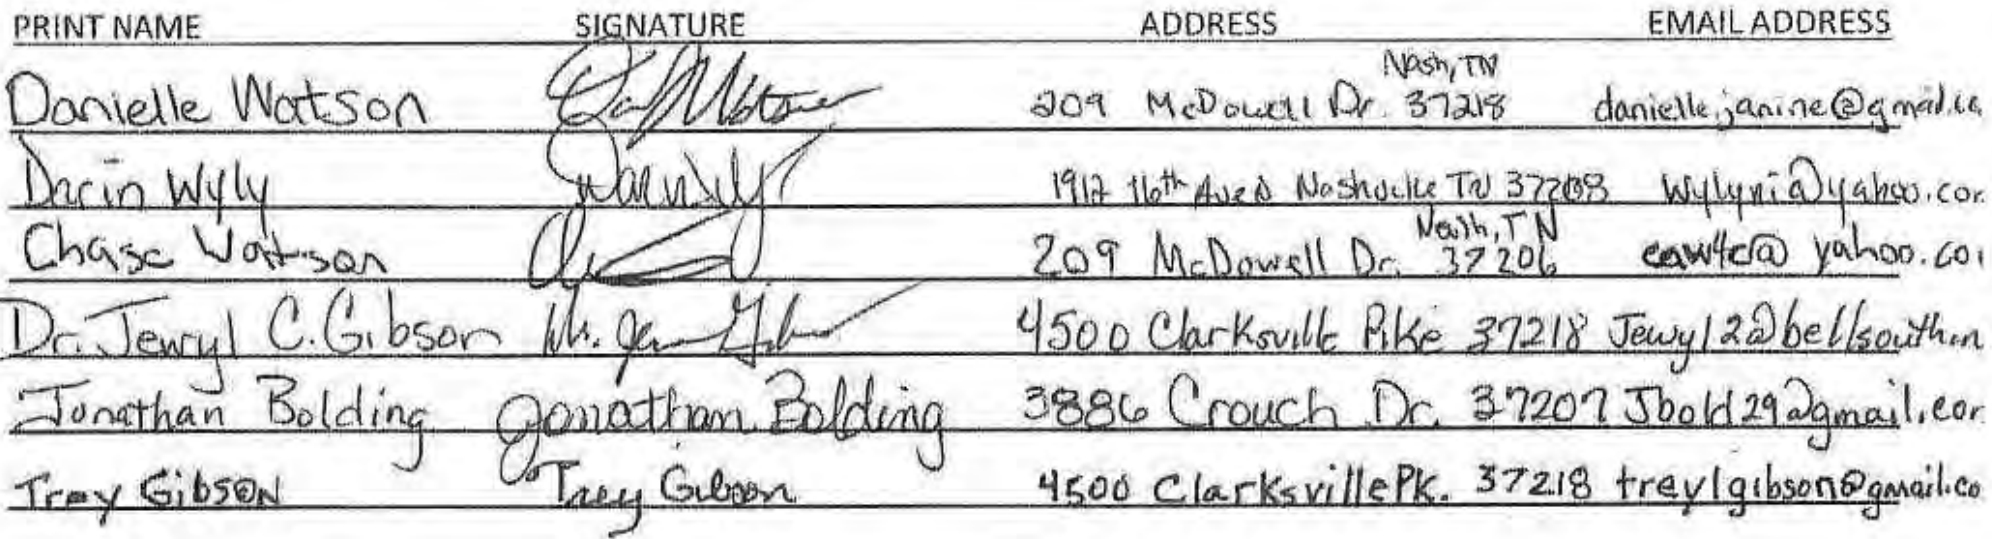 PRINT NAME SIGNATURE ADDRESS EMAIL ADDRESS
Nash, TN
Danielle Watson 209 McDowell Dr. 37218 danielle.janine@gmail.co
Darin Wyly Nashville TN 37208 @yahoo.cor
Nash, TN
Chase Watson 209 McDowell Dr. 37206 @yahoo.coi
Dr. Jewyl C. Gibson 4500 Clarksville Pike 37218 Jewyl2@bellsouth.n
Jonathan Bolding Jonathan Bolding 3886 Crouch Dr. 37207 Jbold29@gmail.cor
Trey Gibson Trey Gibson 4500 Clarksville Pk. 37218 treylgibson@gmail.co